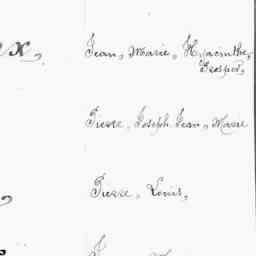 x,
Jean, Marie, Hyacinthe,
Prosper,
Pierre, Joseph Jean, Marie
Pierre, Louis,